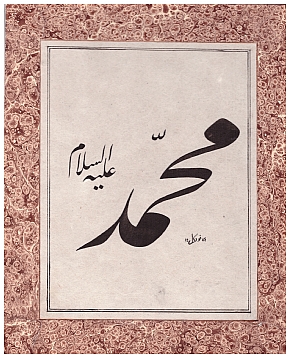 محمّد
عليه السلام